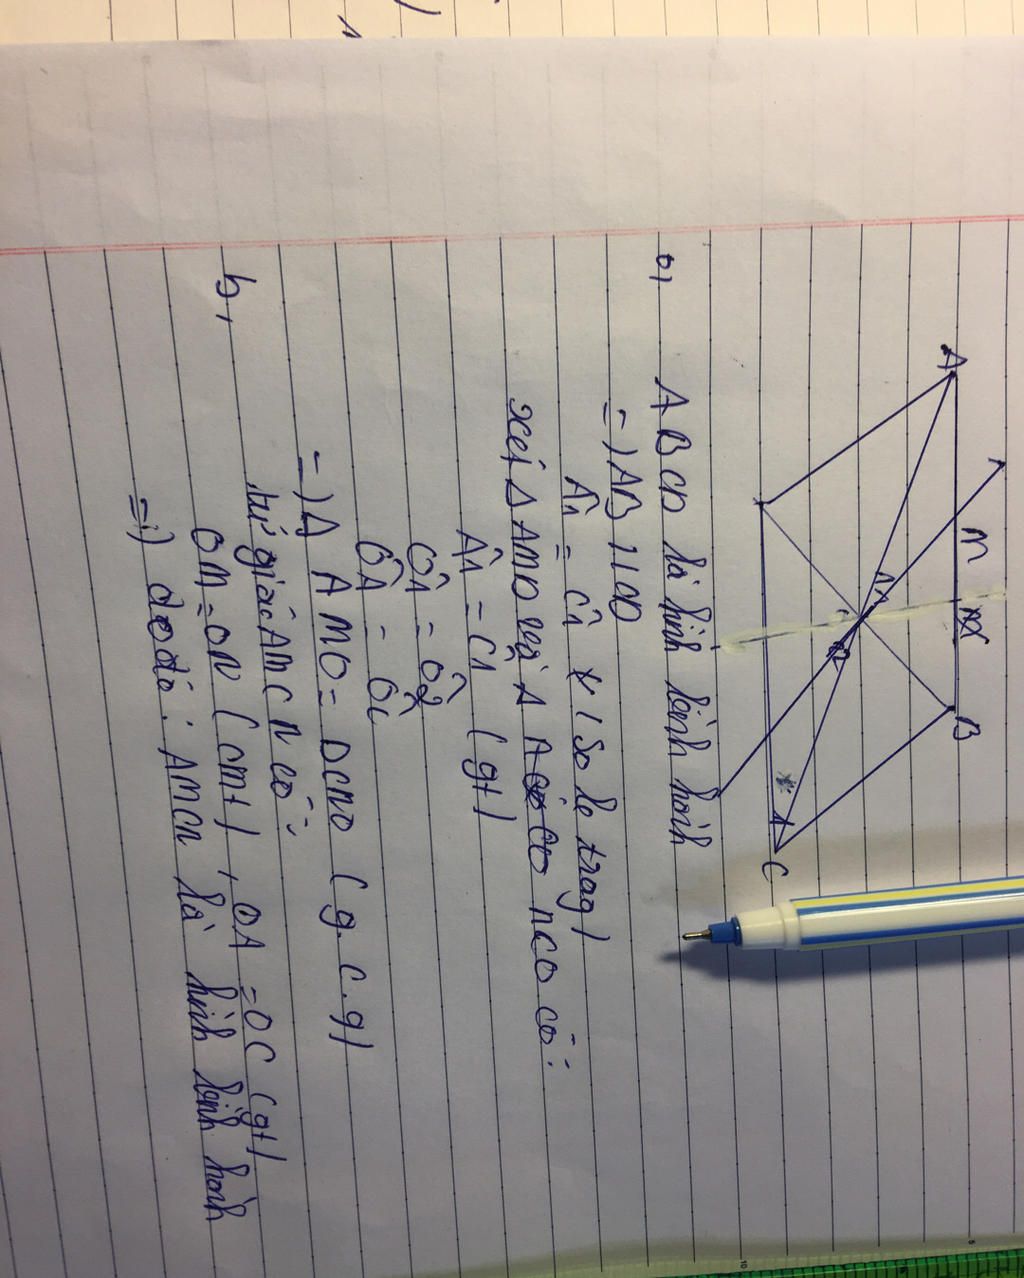 A M B
C
a, ABCD là hình bình hành
=) AB // CD
Â1 = Ĉ1 (so le trog)
xét Δ AMO và Δ NCO có:
Â1 = Ĉ1 (gt)
Ô1 = Ô2
OA = OC
=) Δ AMO = ΔCNO (g.c.g)
b, tứ giác AMCN có:
OM = ON (cmt), OA = OC (gt)
=) do đó: AMCN là hình bình hành